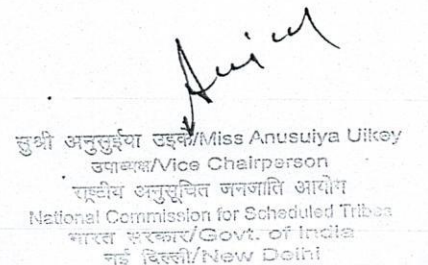 सुश्री अनुसुईया उइके/Miss Anusuiya Uikey
उपाध्यक्ष/Vice Chairperson
राष्ट्रीय अनुसूचित जनजाति आयोग
National Commission for Scheduled Tribes
भारत सरकार/Govt. of India
नई दिल्ली/New Delhi